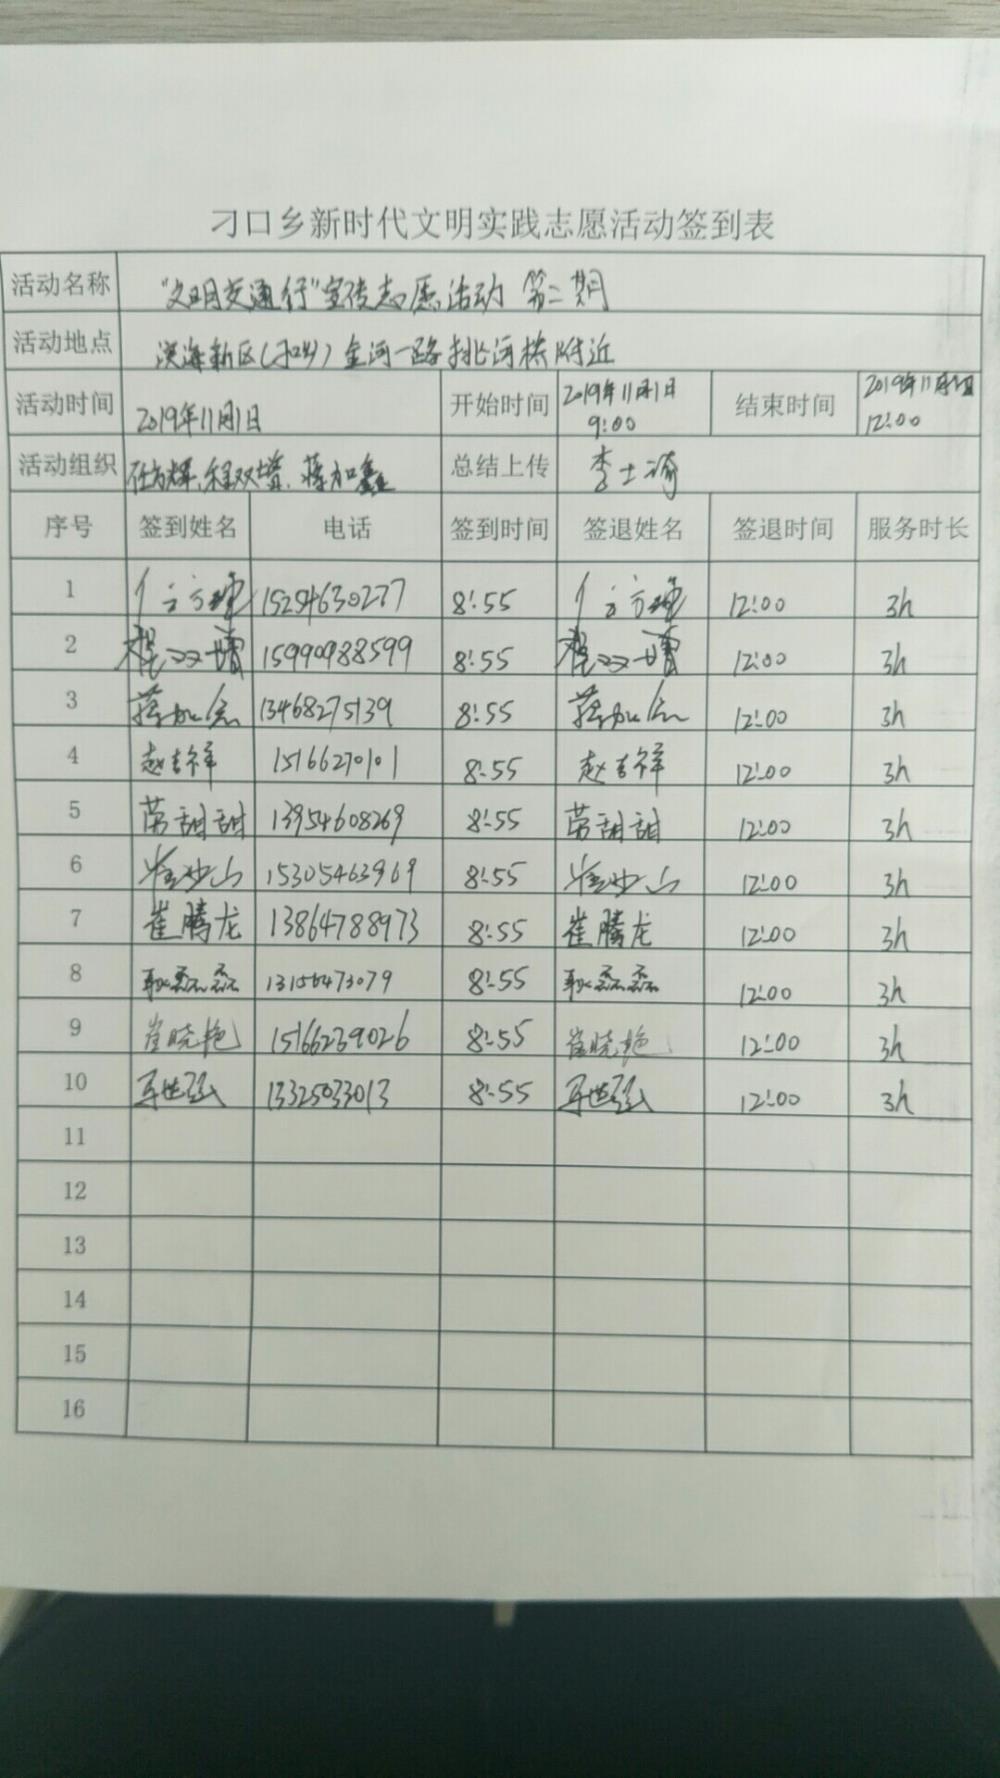 刁口乡新时代文明实践志愿活动签到表
活动名称 "文明交通行"宣传志愿活动 第二期
活动地点 滨海新区(刁口乡) 金河一路挑河桥附近
活动时间 2019年11月1日 开始时间 2019年11月1日 9:00 结束时间 2019年11月1日 12:00
活动组织 任方辉、程双增、蒋加鑫 总结上传 李士
序号 签到姓名 电话 签到时间 签退姓名 签退时间 服务时长
1 15254630277 8:55 12:00 3h
2 程双增 15990988599 8:55 程双增 12:00 3h
3 13468275139 8:55 12:00 3h
4 赵吉祥 15166270101 8:55 赵吉祥 12:00 3h
5 苟甜甜 13954608269 8:55 苟甜甜 12:00 3h
6 15305463969 8:55 12:00 3h
7 崔腾龙 13864788973 8:55 崔腾龙 12:00 3h
8 耿磊磊 13156473079 8:55 耿磊磊 12:00 3h
9 崔晓艳 15166239026 8:55 崔晓艳 12:00 3h
10 13325033013 8:55 12:00 3h
11
12
13
14
15
16